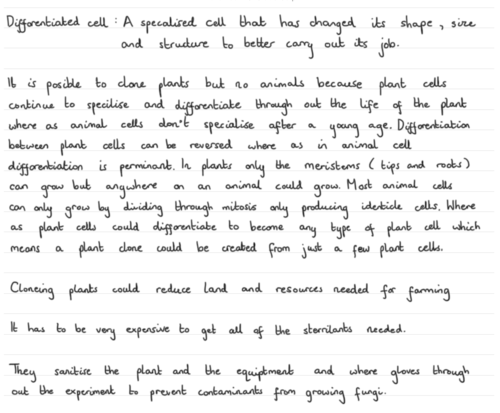 Differentiated cell : A specalised cell that has changed its shape, size
and structure to better carry out its job.
It is posible to clone plants but no animals because plant cells
continue to specilise and differentiate through out the life of the plant
where as animal cells don't specialise after a young age. Differentiation
between plant cells can be reversed where as in animal cell
differentiation is perminant. In plants only the meristems (tips and roots)
can grow but anywhere on an animal could grow. Most animal cells
can only grow by dividing through mitosis only producing identicle cells. Where
as plant cells could differentiate to become any type of plant cell which
means a plant clone could be created from just a few plant cells.
Cloneing plants could reduce land and resources needed for farming
It has to be very expensive to get all of the sterrilants needed.
They sanitise the plant and the equiptment and where gloves through
out the experiment to prevent contaminants from growing fungi.